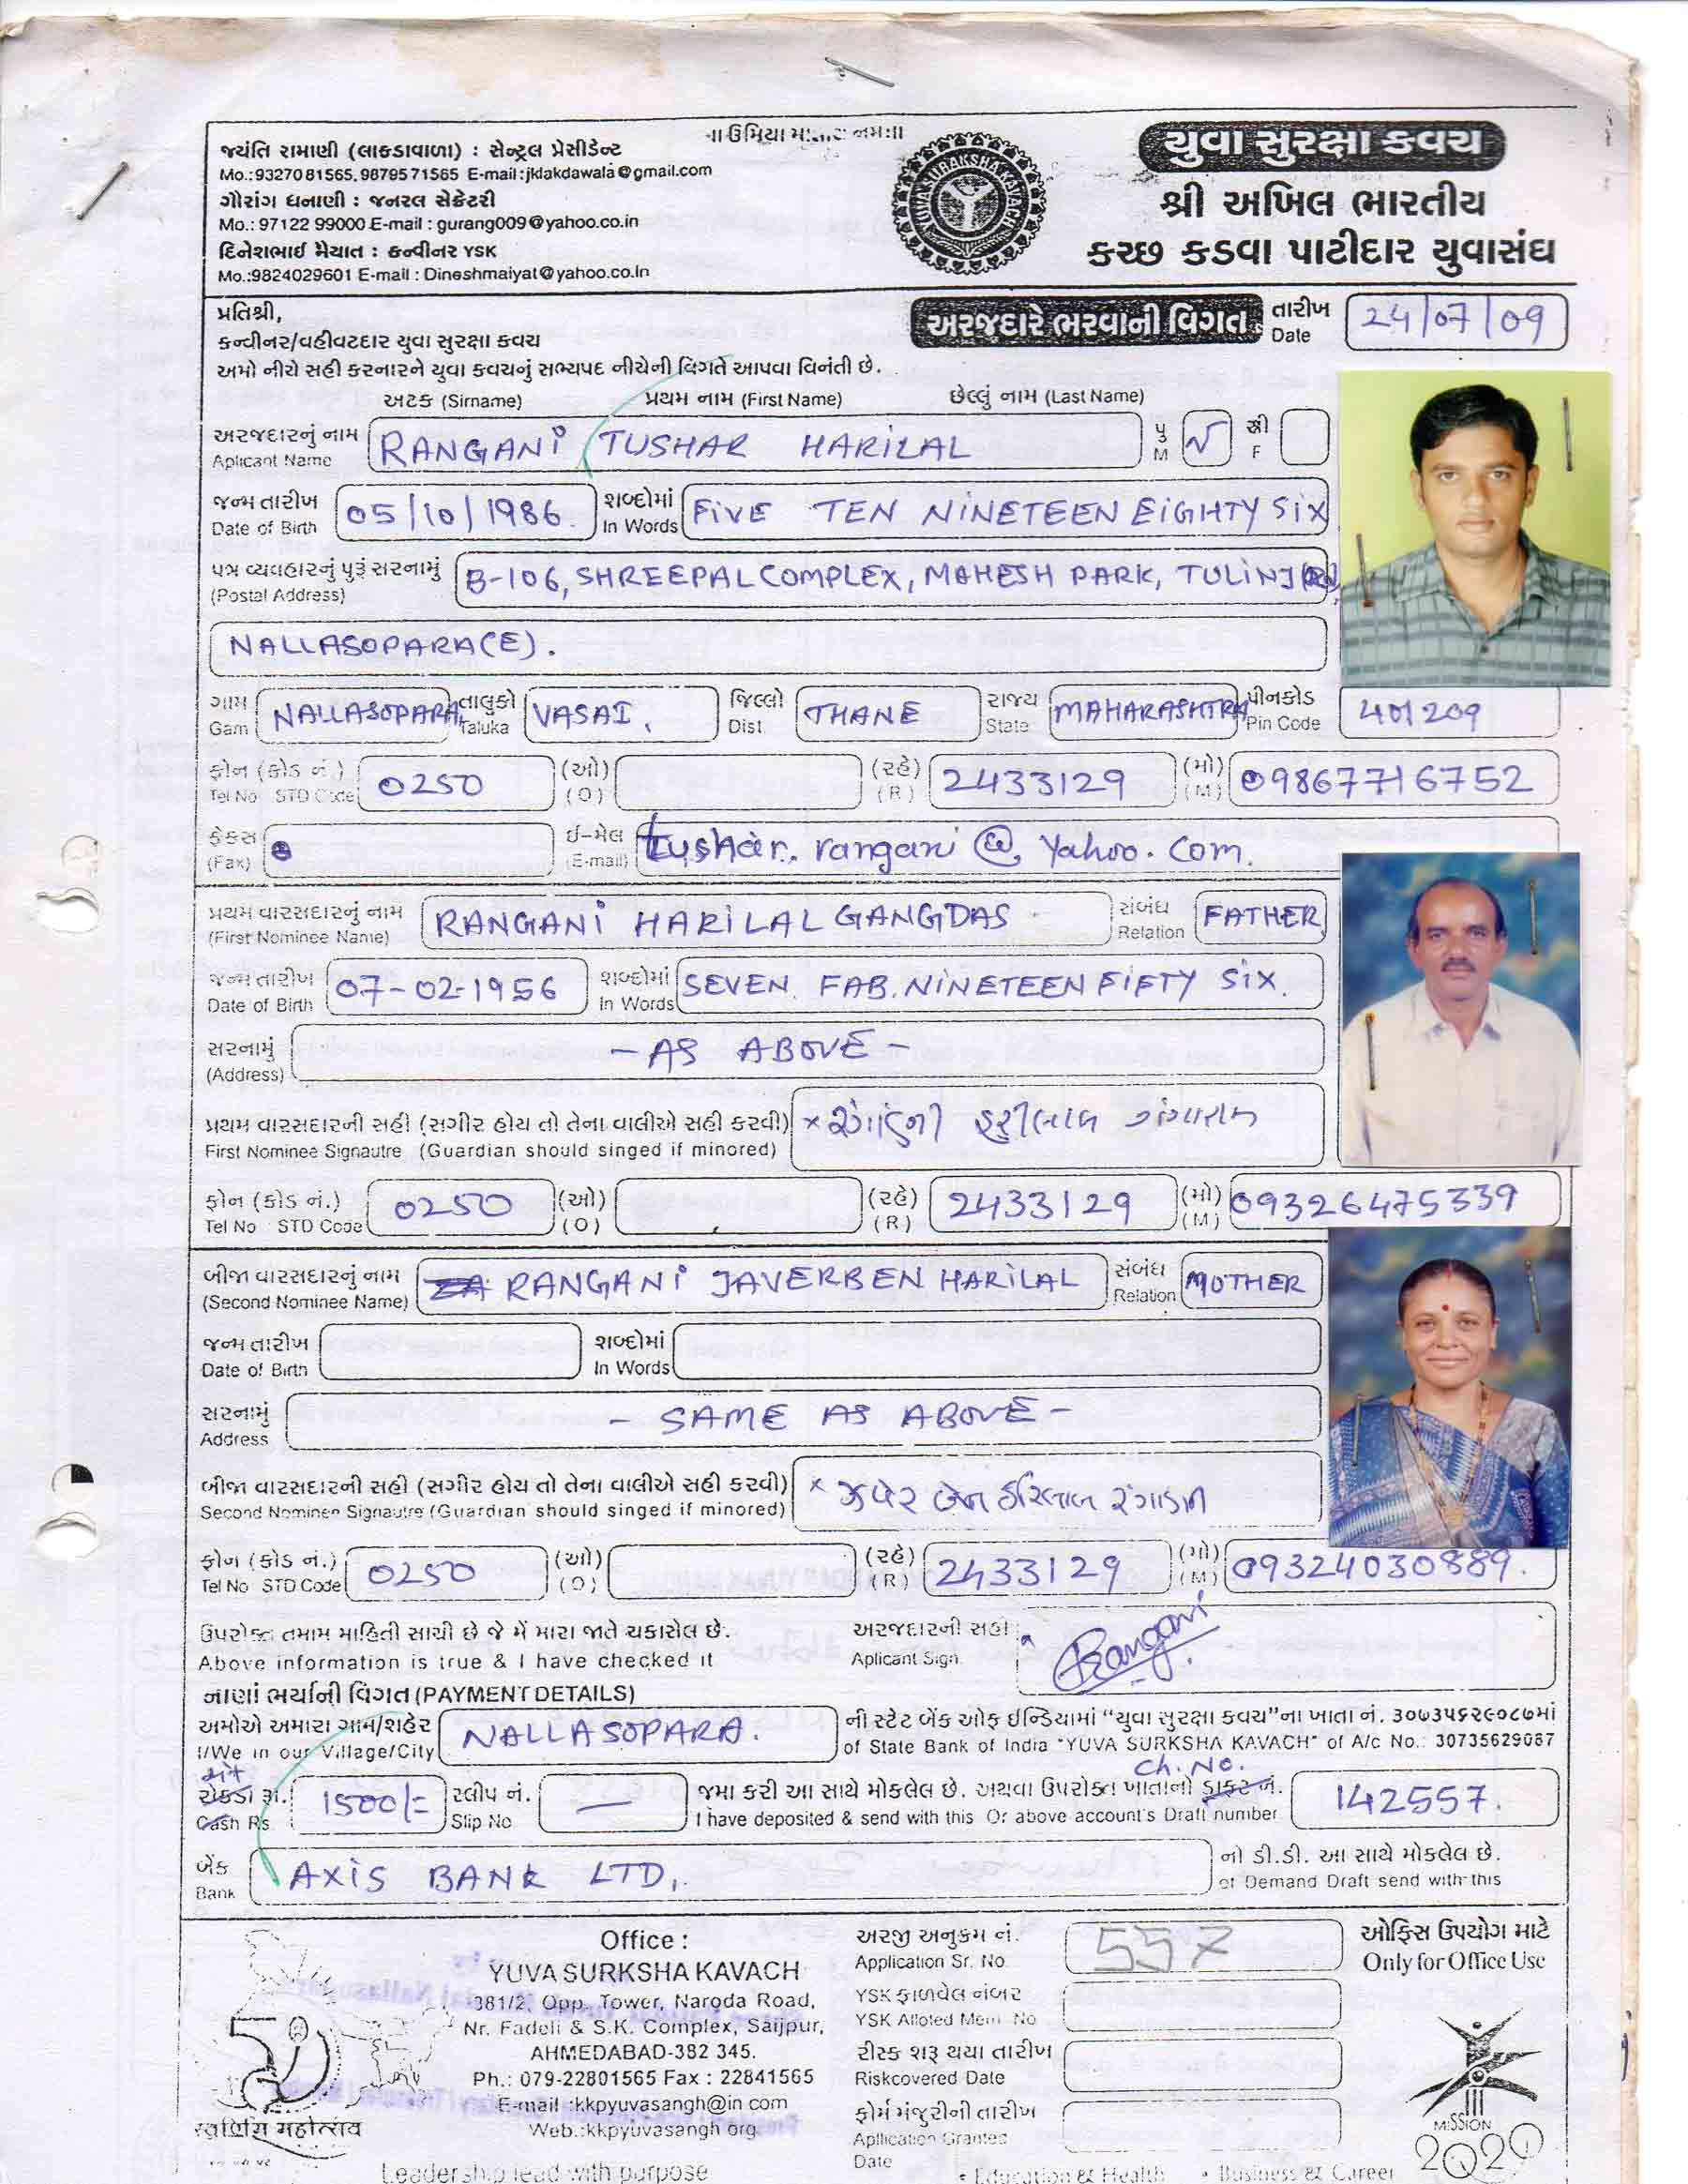 જ્યંતિ રામાણી (લાકડાવાળા) : સેન્ટ્રલ પ્રેસીડેન્ટ
Mo.:9327081565, 9879571565 E-mail:jklakdawala@gmail.com
ગૌરાંગ ધનાણી : જનરલ સેક્રેટરી
Mo.: 97122 99000 E-mail : gurang009@yahoo.co.in
દિનેશભાઈ મૈયાત : કન્વીનર YSK
Mo.:9824029601 E-mail : Dineshmaiyat@yahoo.co.In
YUVA SURAKSHA KAVACH
યુવા સુરક્ષા કવચ
શ્રી અખિલ ભારતીય
કચ્છ કડવા પાટીદાર યુવાસંઘ
પ્રતિશ્રી,
કન્વીનર/વહીવટદાર યુવા સુરક્ષા કવચ
અમો નીચે સહી કરનારને યુવા કવચનું સભ્યપદ નીચેની વિગતે આપવા વિનંતી છે.
અરજદારે ભરવાની વિગત
તારીખ Date 24/07/09
અટક (Sirname) પ્રથમ નામ (First Name) છેલ્લું નામ (Last Name)
અરજદારનું નામ Aplicant Name RANGANI TUSHAR HARILAL પુ M સ્ત્રી F
જન્મ તારીખ Date of Birth 05/10/1986 શબ્દોમાં In Words FIVE TEN NINETEEN EIGHTY SIX
પત્ર વ્યવહારનું પુરૂં સરનામું (Postal Address) B-106, SHREEPAL COMPLEX, MAHESH PARK, TULINJ
NALLASOPARA(E).
ગામ Gam NALLASOPARA તાલુકો Taluka VASAI, જિલ્લો Dist. THANE રાજ્ય State MAHARASHTRA પીનકોડ Pin Code 401209
ફોન (કોડ નં.) Tel No STD Code 0250 (ઓ) (O) (રહે) (R) 2433129 (મો) (M) 09867716752
ફેકસ (Fax) ઈ-મેલ (E-mail) tushar.rangani@yahoo.com.
પ્રથમ વારસદારનું નામ (First Nominee Name) RANGANI HARILAL GANGDAS સંબંધ Relation FATHER
જન્મ તારીખ Date of Birth 07-02-1956 શબ્દોમાં In Words SEVEN FAB. NINETEEN FIFTY SIX.
સરનામું (Address) - AS ABOVE -
પ્રથમ વારસદારની સહી (સગીર હોય તો તેના વાલીએ સહી કરવી)
First Nominee Signautre (Guardian should singed if minored)
ફોન (કોડ નં.) Tel No STD Code 0250 (ઓ) (O) (રહે) (R) 2433129 (મો) (M) 09326475339
બીજા વારસદારનું નામ (Second Nominee Name) RANGANI JAVERBEN HARILAL સંબંધ Relation MOTHER
જન્મ તારીખ Date of Birth શબ્દોમાં In Words
સરનામું Address - SAME AS ABOVE -
બીજા વારસદારની સહી (સગીર હોય તો તેના વાલીએ સહી કરવી)
Second Nominee Signautre (Guardian should singed if minored)
ફોન (કોડ નં.) Tel No STD Code 0250 (ઓ) (O) (રહે) (R) 2433129 (મો) (M) 09324030889.
ઉપરોક્ત તમામ માહિતી સાચી છે જે મેં મારા જાતે ચકાસેલ છે. અરજદારની સહી :
Above information is true & I have checked it Aplicant Sign. Rangani
નાણાં ભર્યાની વિગત (PAYMENT DETAILS)
અમોએ અમારા ગામ/શહેર NALLASOPARA. ની સ્ટેટ બેંક ઓફ ઈન્ડિયામાં "યુવા સુરક્ષા કવચ"ના ખાતા નં. ૩૦૭૩૫૬૨૯૦૮૭માં
I/We in our Village/City of State Bank of India "YUVA SURKSHA KAVACH" of A/c No.: 30735629087
Ch. No.
રોકડા રૂા. 1500/= સ્લીપ નં. — જમા કરી આ સાથે મોકલેલ છે. અથવા ઉપરોક્ત ખાતાનો ડ્રાફ્ટ નં. 142557.
Cash Rs. Slip No I have deposited & send with this Or above account's Draft number
બેંક Bank AXIS BANK LTD, નો ડી.ડી. આ સાથે મોકલેલ છે.
of Demand Draft send with this
Office :
YUVA SURKSHA KAVACH
381/2, Opp. Tower, Naroda Road,
Nr. Fadeli & S.K. Complex, Saijpur,
AHMEDABAD-382 345.
Ph.: 079-22801565 Fax : 22841565
E-mail :kkpyuvasangh@in com
Web.:kkpyuvasangh org
અરજી અનુક્રમ નં. Application Sr. No 557
YSK ફાળવેલ નંબર YSK Alloted Mem. No
રીસ્ક શરૂ થયા તારીખ Riskcovered Date
ફોર્મ મંજુરીની તારીખ Apllication Grantes Date
ઓફિસ ઉપયોગ માટે
Only for Office Use
MISSION
2020
Leadership lead with purpose
• Education & Health • Business & Career